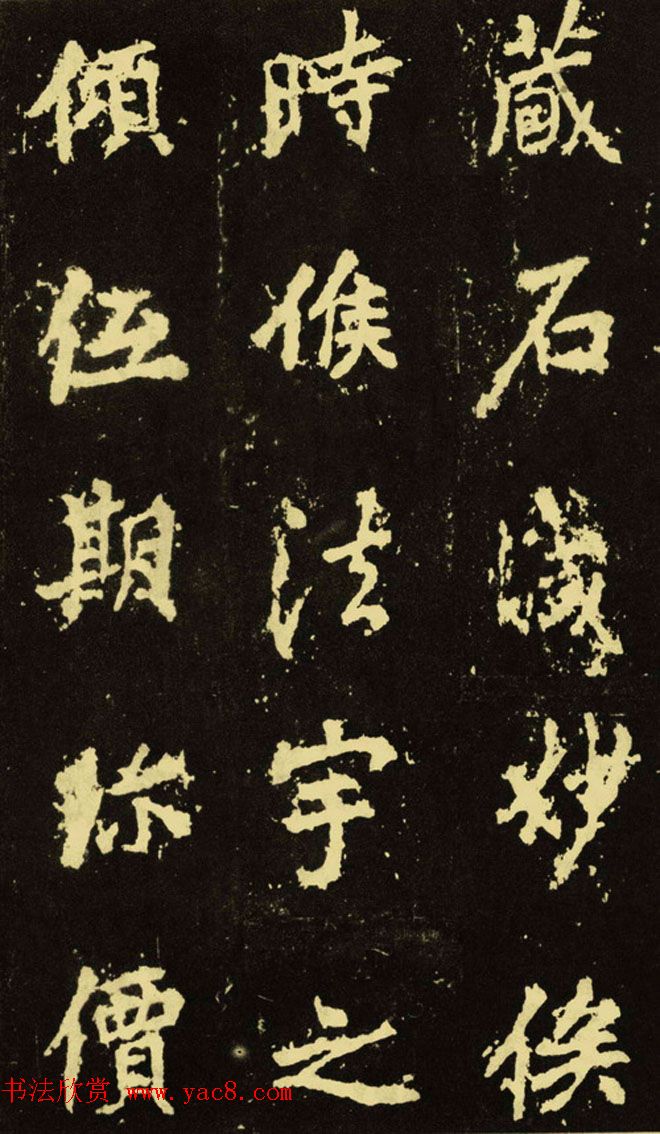 藏石妙俟
時候法宇之
傾伍期珎價
书法欣赏 www.yac8.com